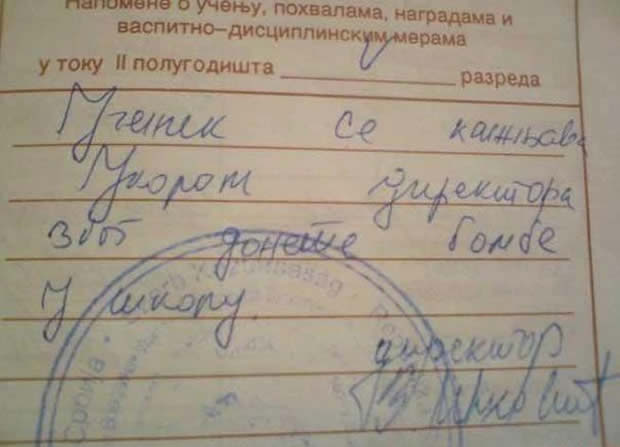 Напомене о учењу, похвалама, наградама и
васпитно–дисциплинским мерама
у току II полугодишта V разреда
Ученик се кажњава
Укором директора
због донете бомбе
у школу.
директор
Србија